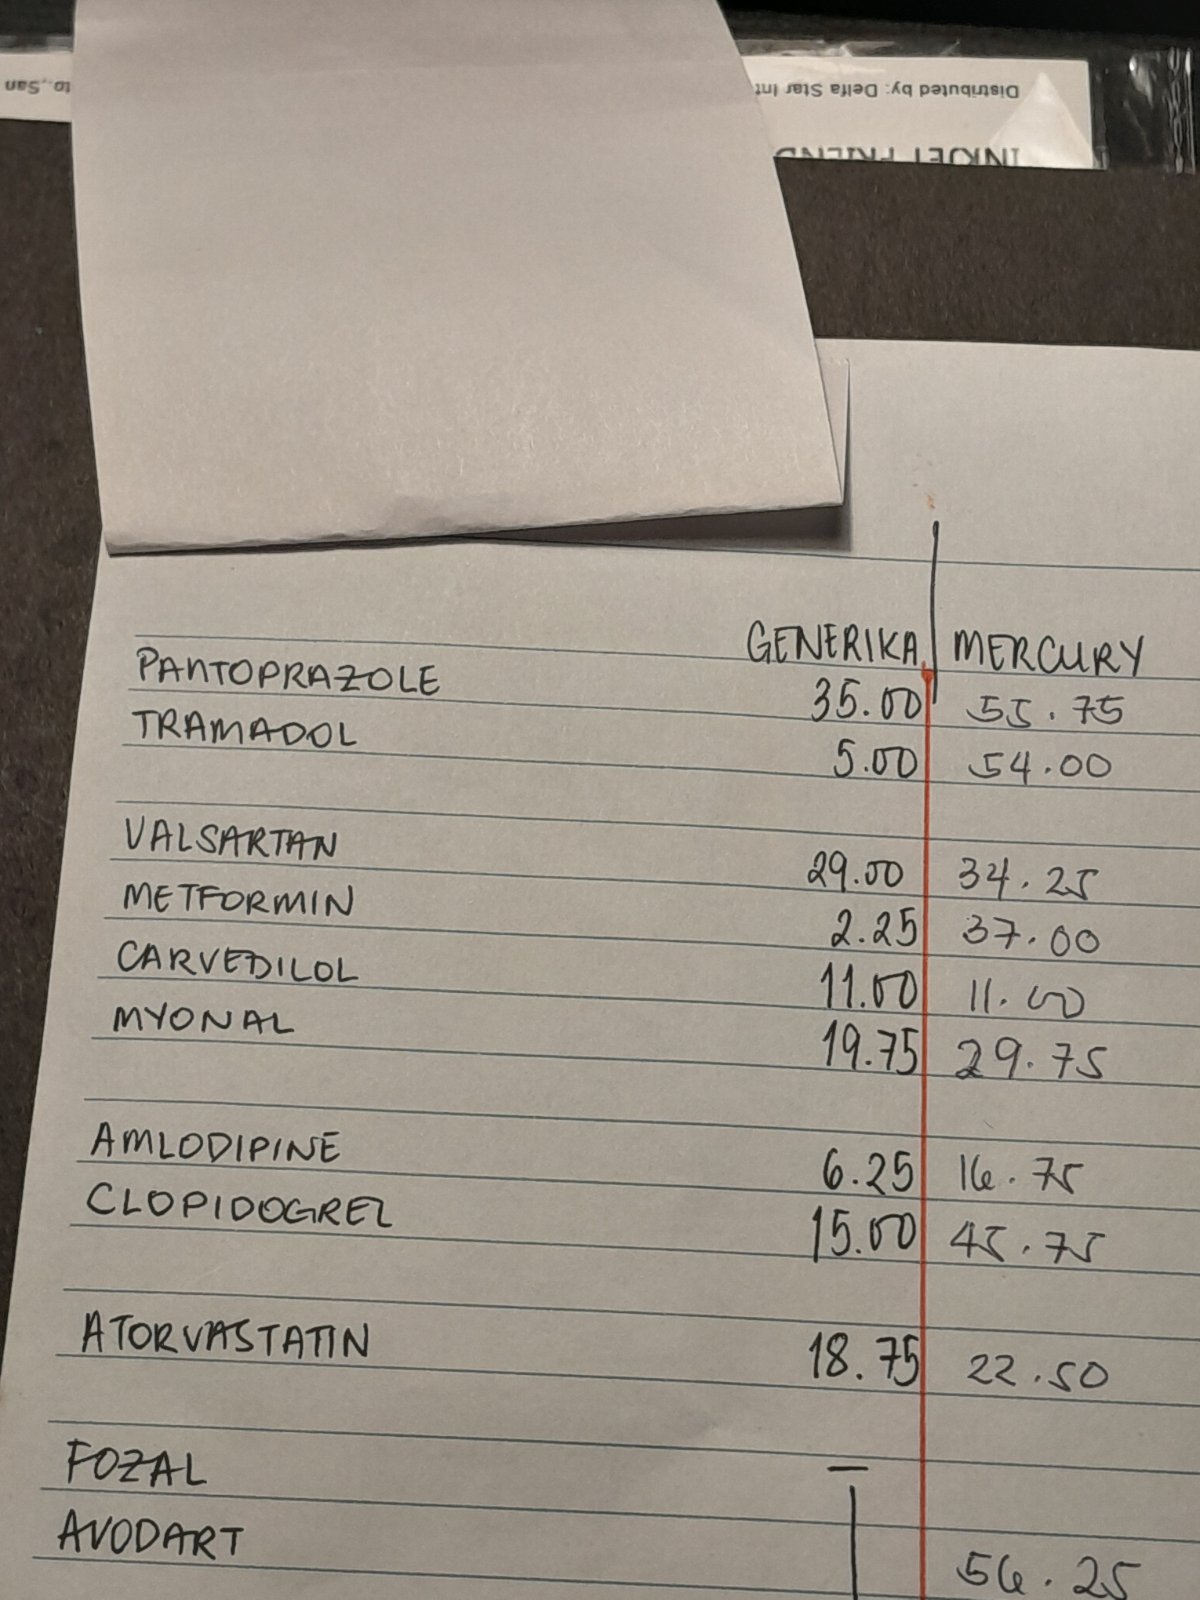 to., San
Distributed by: Delfa Star Int
INKJET FRIEND
GENERIKA MERCURY
PANTOPRAZOLE 35.00 55.75
TRAMADOL 5.00 54.00
VALSARTAN 29.00 34.25
METFORMIN 2.25 37.00
CARVEDILOL 11.00 11.00
MYONAL 19.75 29.75
AMLODIPINE 6.25 16.75
CLOPIDOGREL 15.00 45.75
ATORVASTATIN 18.75 22.50
FOZAL —
AVODART 56.25